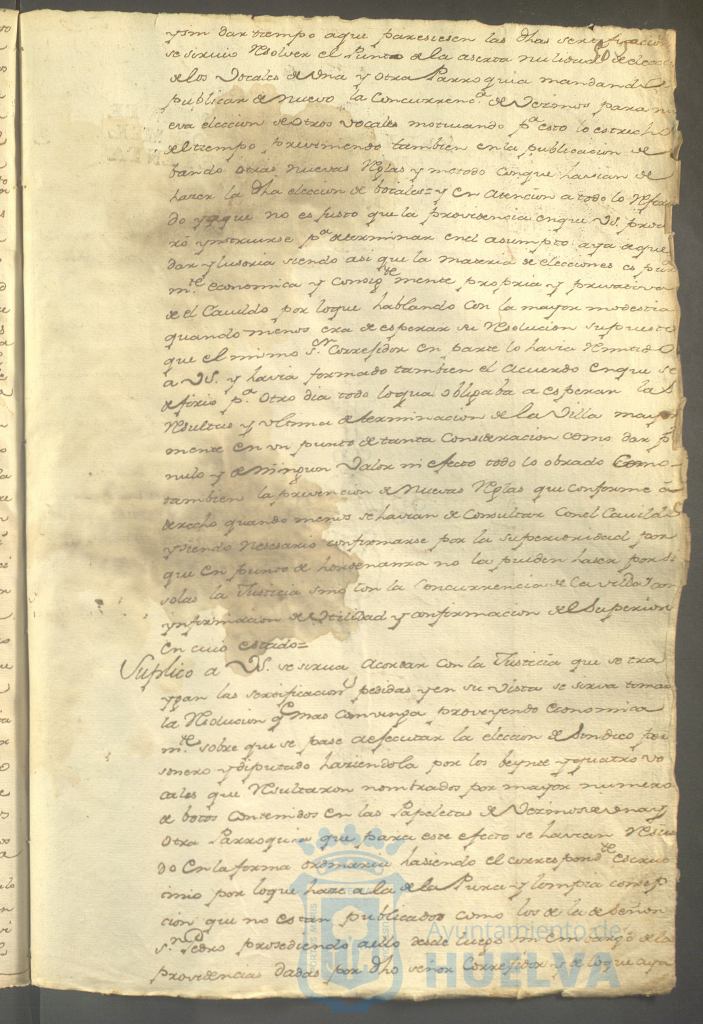 y sin dar tiempo a que paresiesen las dhas sertificacion
se sirvio Resolver el Punto de la aserta nulidad de elecc
de los Vocales de Una y otra Parroquia mandando
publicar de nuevo la Concurrenca. de Vezinos para nu
eva eleccion de otros vocales motivando pa. esto lo estrecho
del tiempo previniendo tambien en la publicacion de
bando otras nuevas Reglas y metodo con que havian de
hazer la dha eleccion de bocales= y en Atencion a todo lo Refer
do y a que no es justo que la providencia en que VS. proc
ro ynstruirse pa. determinar en el asumpto aya de que
dar ylusoria siendo asi que la materia de elecciones es pur
mte. economica y consigte. mente propria y privativa
de el Cavildo por lo que hablando con la mayor modestia
quando menos era de esperar su Resolucion supuesto
que el mismo Sr. Corregidor en parte lo havia Remitido
a VS. y havia formado tambien el Acuerdo en que se
defirio pa. otro dia todo lo qual obligaba a esperar la
Resultas y ultima determinacion de la Villa mayor
mente en un punto de tanta Consideracion como dar pr.
nulo y de Ningun Valor ni efecto todo lo obrado Como
tambien la prevencion de nuevas Reglas que conforme a
derecho quando menos se havian de Consultar Con el Cavildo
y siendo Nesesario confirmarse por la superioridad por
que en punto de hordenanza no la pueden haser por si
solas la Justicia sino con la Concurrencia de Cavildo con
ynformacion de Utilidad y confirmacion del Superior
En cuio estado=
Suplico a VS. se sirva Acordar con la Justicia que se tra
ygan las sertificacion. pedidas y en su Vista se sirva tomar
la Resolucion q. mas convenga proveyendo economica
mte. sobre que se pase a efecutar la eleccion de Sindico per
sonero y diputado haziendola por los beynte y quatro vo
cales que Resultaron nombrados por mayor numero
de botos contenidos en las Papeletas de Vezinos de una y
otra Parroquia que para este efecto se havian Resevi
do En la forma ordinaria hasiendo el correspondte. escru
tinio por lo que haze a la de la Pura y limpia consep
cion que no estan publicados como los de la de Señor
Sn. Pedro prosediendo a ello desde luego sin embargo de las
providencias dadas por dho señor Corregidor y de lo que aya
Ayuntamiento de
HUELVA